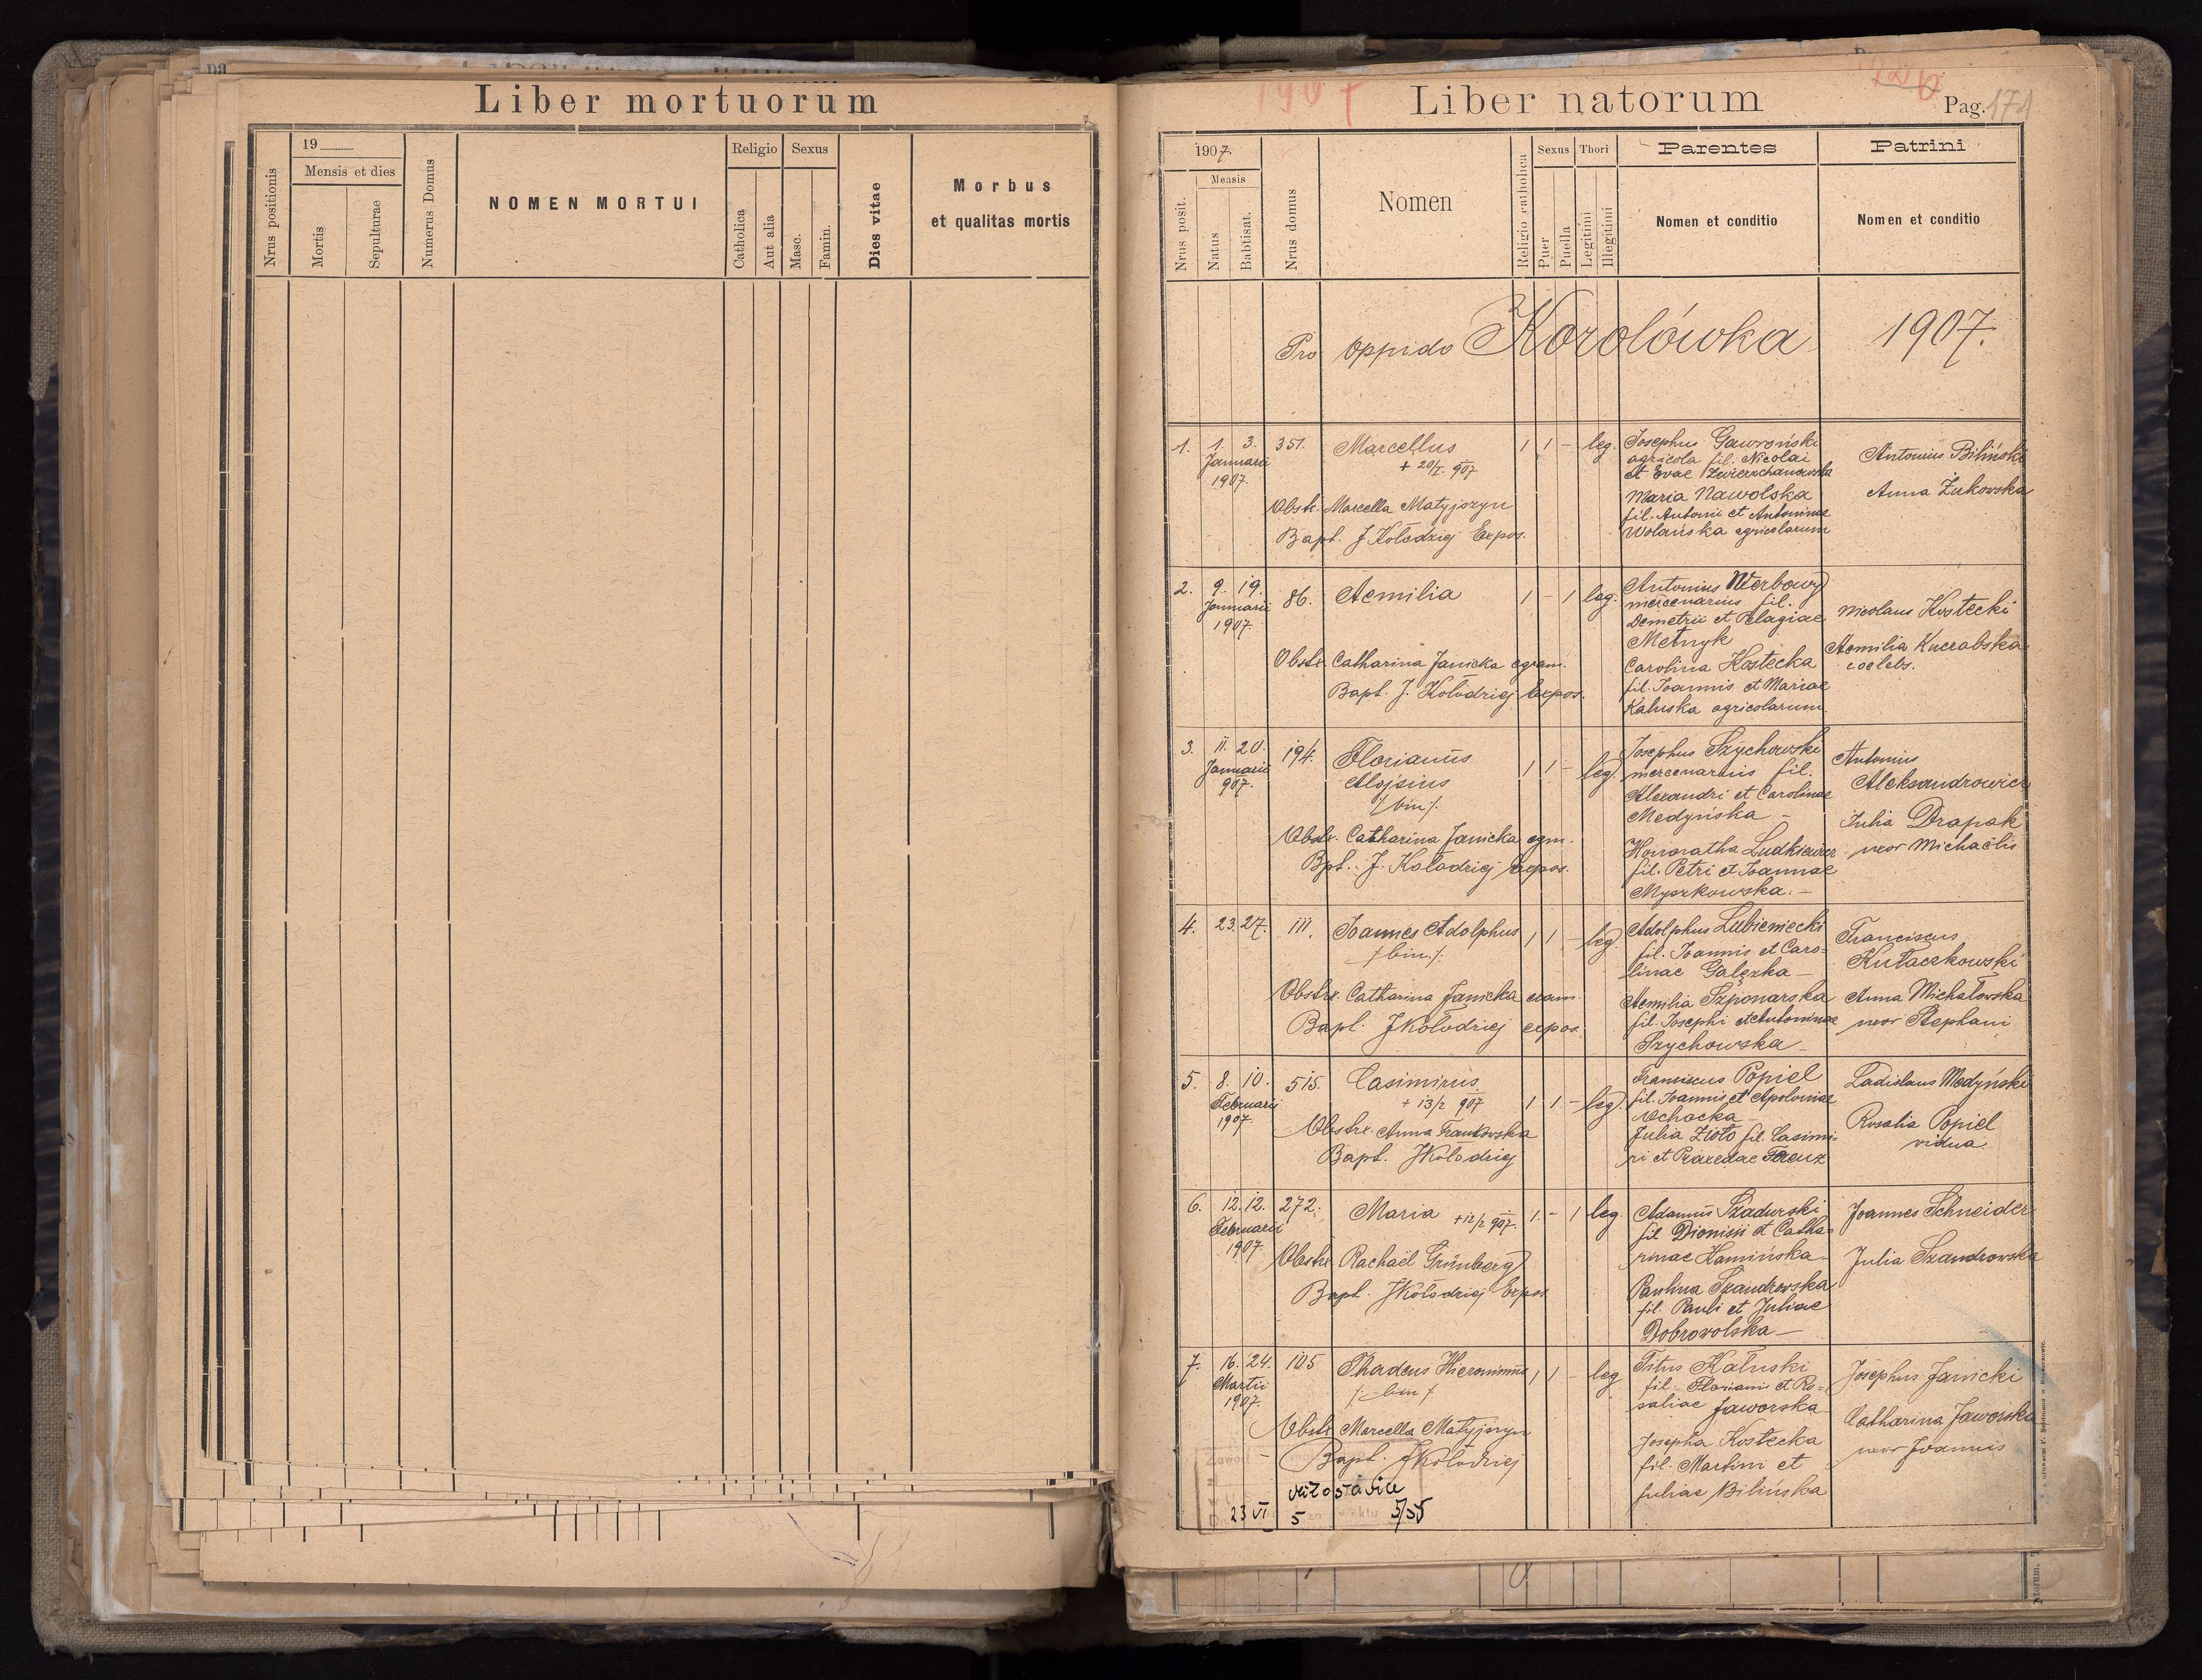 Liber mortuorum
Nrus positionis
19
Mensis et dies
Mortis
Sepulturae
Numerus Domus
NOMEN MORTUI
Religio
Catholica
Aut alia
Sexus
Masc.
Famin.
Dies vitae
Morbus
et qualitas mortis
1907
Liber natorum
Pag. 171
1907.
Nrus posit.
Mensis
Natus
Babtisat.
Nrus domus
Nomen
Religio catholica
Sexus
Puer
Puella
Thori
Legitimi
Illegitimi
Parentes
Nomen et conditio
Patrini
Nomen et conditio
Pro oppido Korolówka 1907.
1. 1. 3. 351. Marcellus 1 1 - leg.
Januarii
1907.
+ 20/I. 907
Obstr. Marcella Matyjozyn
Bapt. J Kołodziej Expos.
Josephus Gawroński
agricola fil. Nicolai
et Evae Zwierzchanowska
Maria Nawolska
fil. Antonii et Antoninae
Wolańska agricolarum
Antonius Biliński
Anna Żukowska
2. 9. 19. 86. Aemilia 1 - 1 leg.
Januarii
1907.
Obstr. Catharina Janicka exam.
Bapt. J. Kołodziej Expos.
Antonius Werbowy
mercenarius fil.
Demetrii et Pelagiae
Metnyk
Carolina Kostecka
fil. Joannis et Mariae
Kaluska agricolarum
Nicolaus Kostecki
Aemilia Kucrabska
coelebs.
3. 11. 20. 194. Florianus 1 1 - leg.
Januarii
907.
Alojsius
/bin/.
Obstr. Catharina Janicka exm.
Bpt. J. Kołodziej expos.
Josephus Szychowski
mercenarius fil.
Alexandri et Carolinae
Medyńska -
Honoratha Ludkiewicz
fil. Petri et Joannae
Myszkowska. -
Antonius
Aleksandrowicz
Julia Drapak
uxor Michaëlis
4. 23. 27. 111. Joannes Adolphus 1 1 - leg.
/bin./.
Obstr. Catharina Janicka exam.
Bapt. J Kołodziej expos.
Adolphus Lubieniecki
fil. Joannis et Caro=
linae Gałęzka -
Aemilia Szponarska
fil. Josephi et Antoninae
Szychowska -
Franciscus
Kułaczkowski
Anna Michałowska
uxor Stephani
5. 8. 10. 515. Casimirus. 1 1 - leg.
Februarii
1907.
+ 13/2 907
Obstr. Anna Frankowska
Bapt. J Kołodziej
Franciscus Popiel
fil. Joannis et Apoloniae
Julia Zioło fil. Casimi=
ri et Praxedae
Ladislaus Medyński
Rosalia Popiel
vidua.
6. 12. 12. 272. Maria + 12/2 907. 1. - 1 leg.
Februarii
1907.
Obstr. Rachaël Grünberg
Bapt. J Kołodziej Expos
Adamus Szadurski
fil Dionisii et Catha=
rinae Kamińska -
Paulina Szandrowska
fil. Pauli et Juliae
Dobrowolska -
Joannes Schneider
Julia Szandrowska
7. 16. 24. 105 Thadeus Hieronimus 1 1 - leg
Martii
1907.
/. bin /
Obstr. Marcella Matyjozyn
Bapt. J Kołodziej
Titus Kałuski
fil. Floriani et Ro=
saliae Jaworska
Josepha Kostecka
fil. Martini et
Juliae Bilińska
Josephus Janicki
Catharina Jaworska
uxor Joannis
Zawod
23 VI 5 5/55